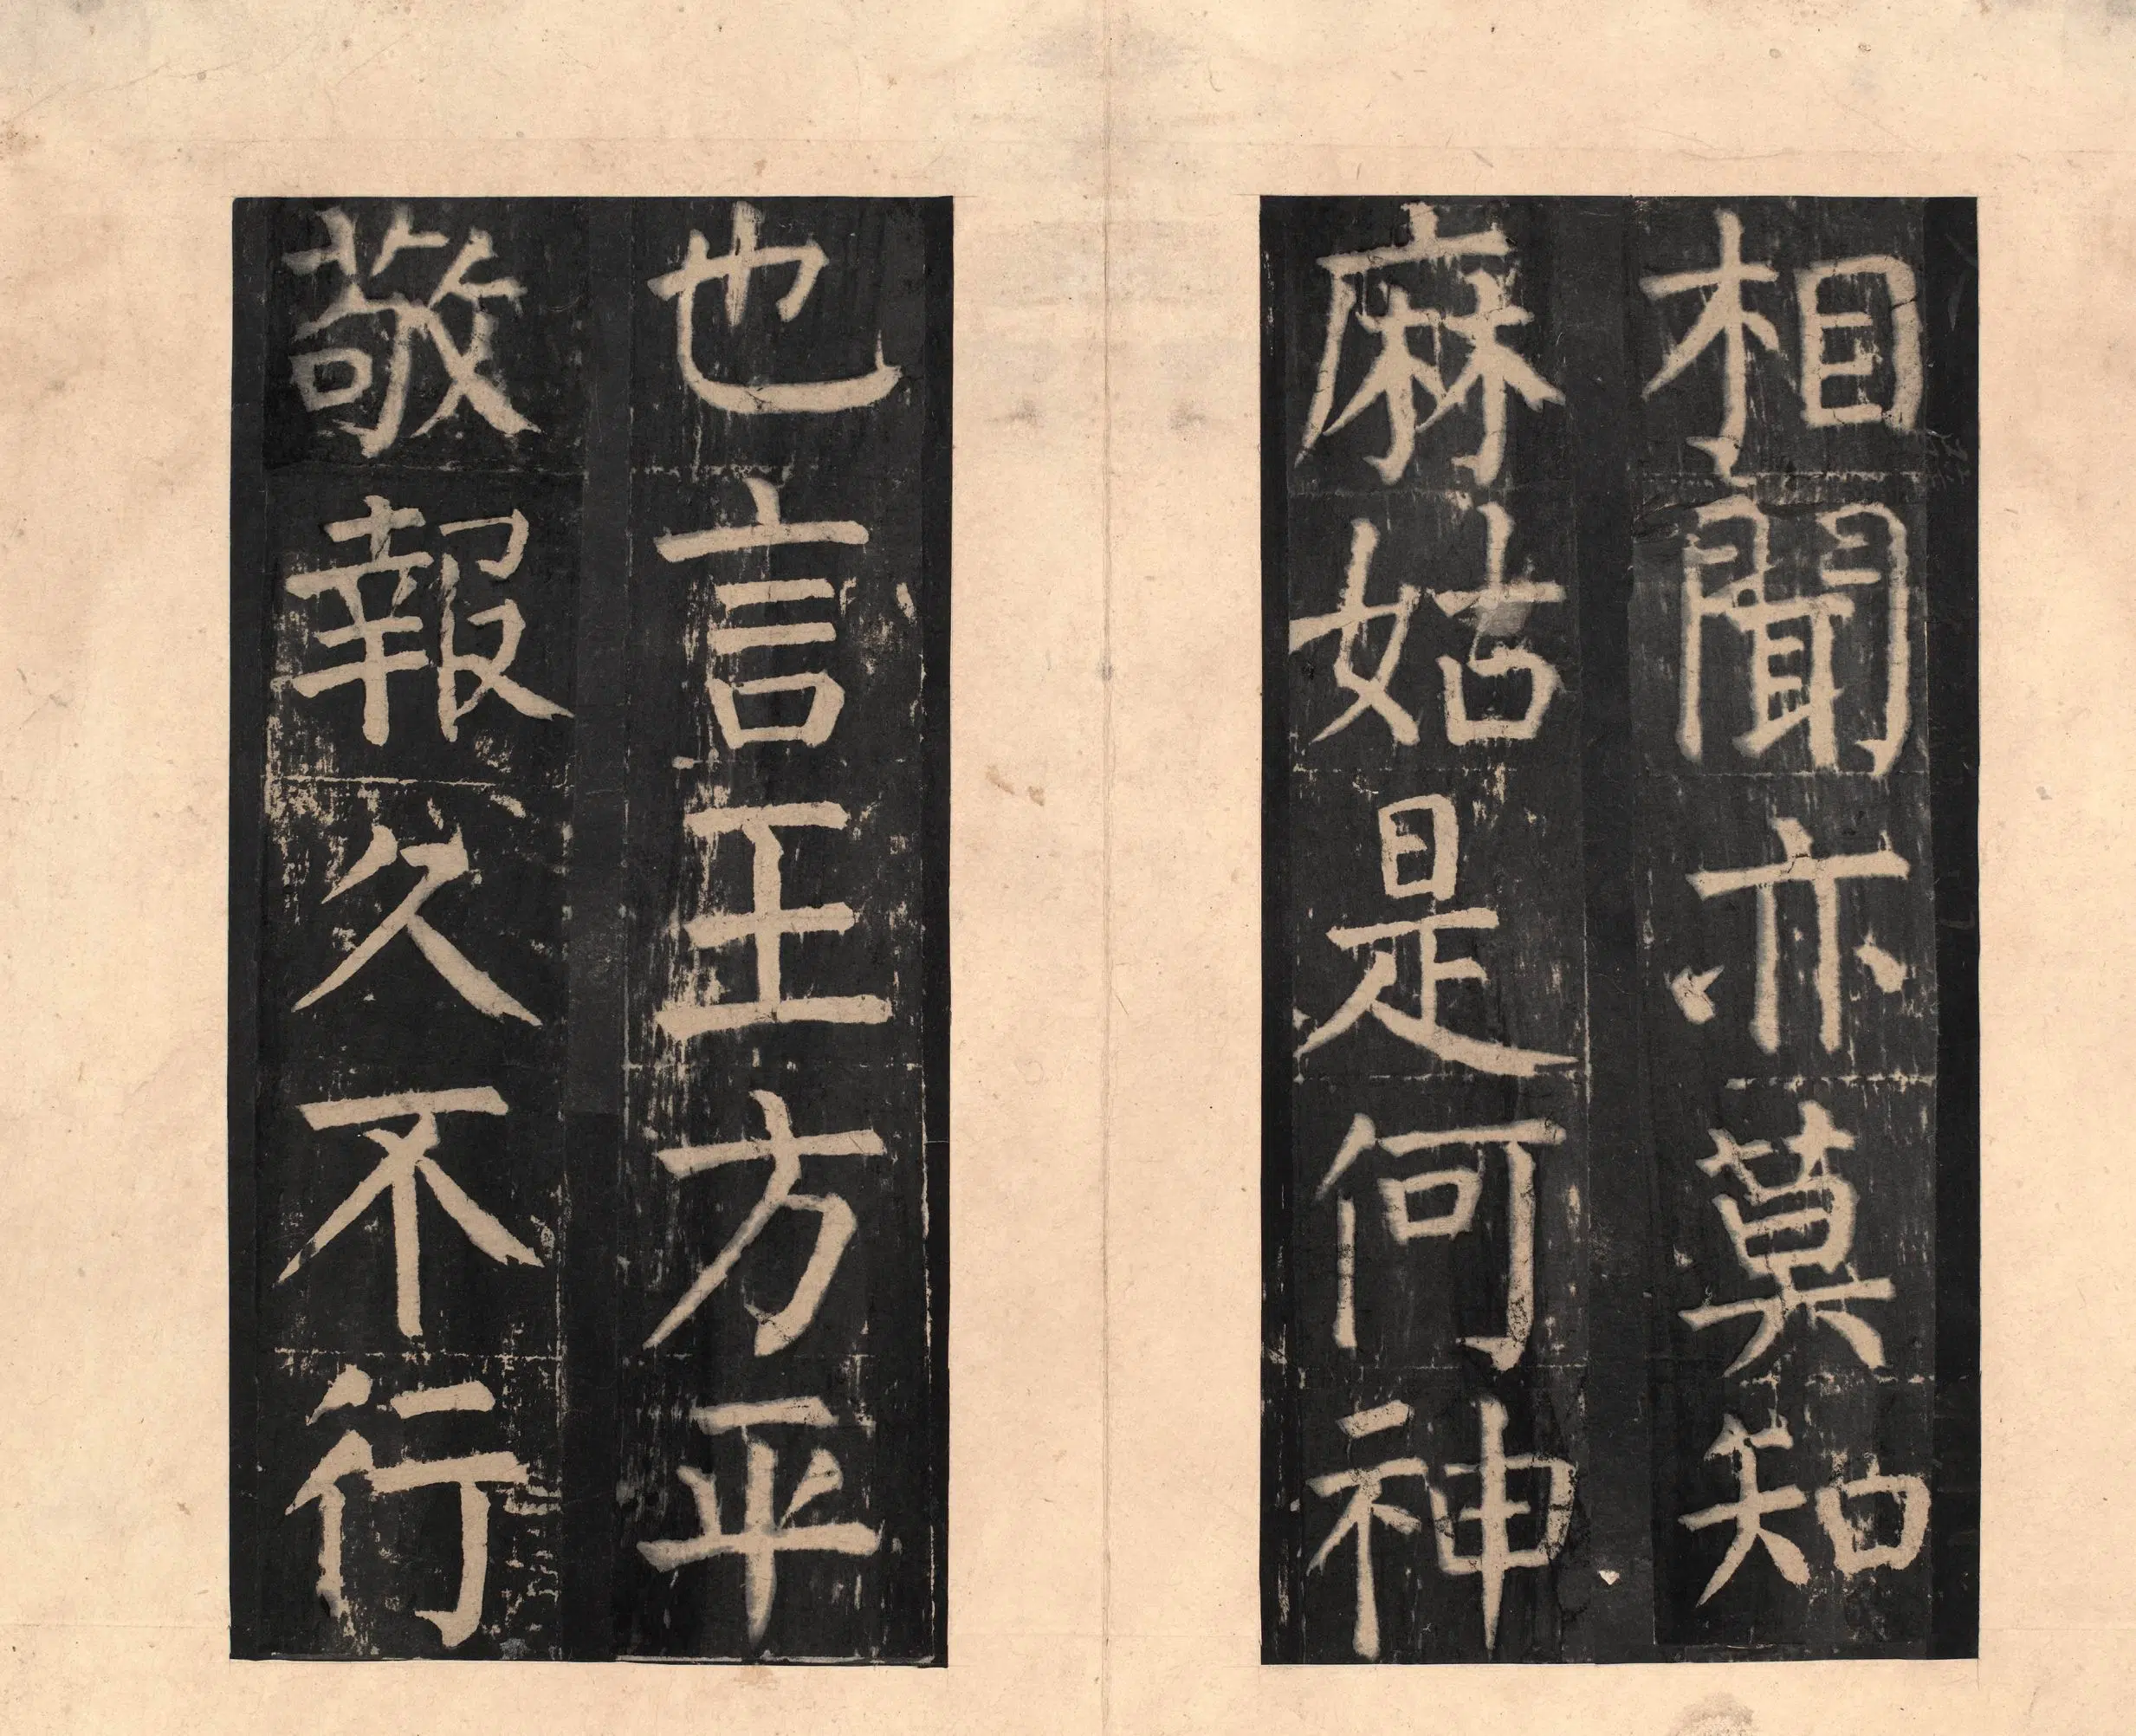 相聞亦莫知
麻姑是何神
也言王方平
敬報久不行